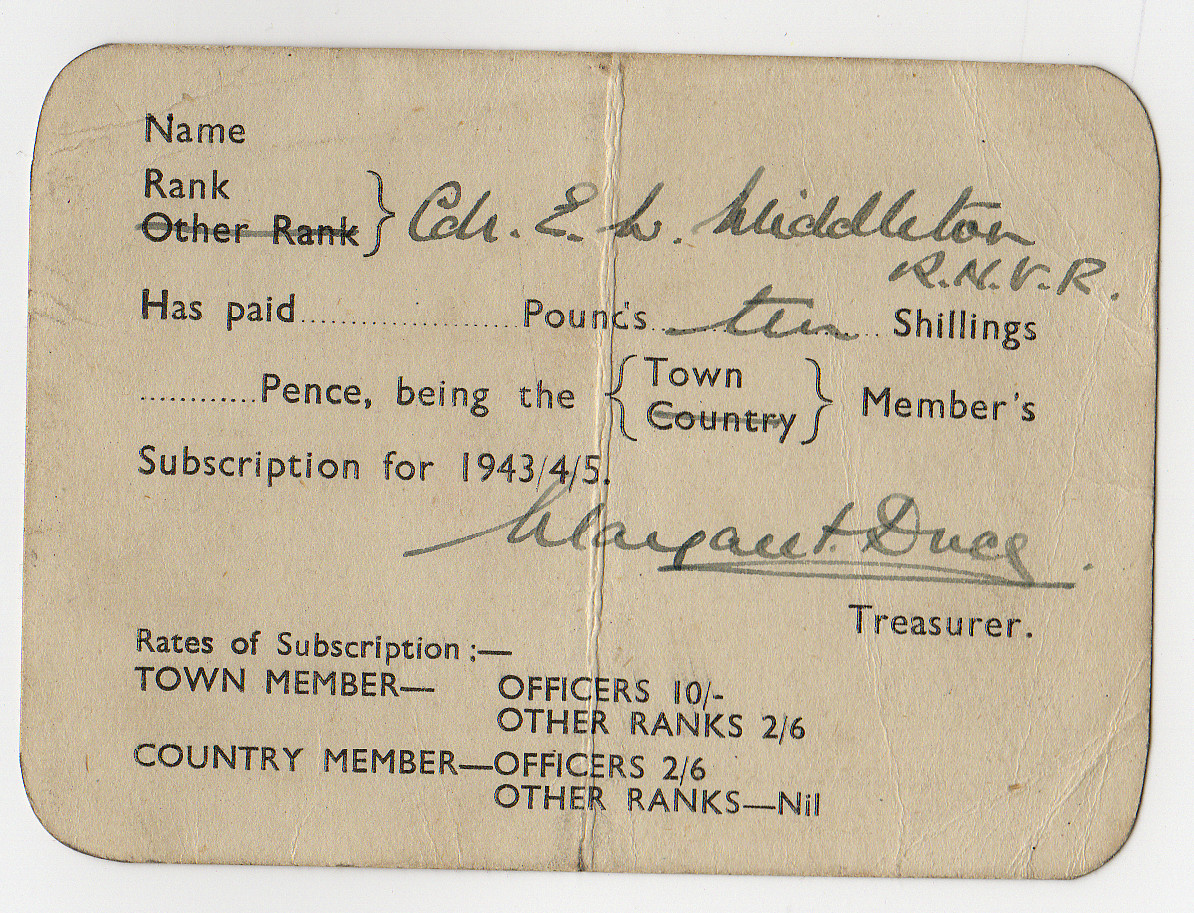 Name
Rank
Other Rank } Cdr. E. L. Middleton
R.N.V.R.
Has paid...................... Pounds ten Shillings
............Pence, being the { Town
Country } Member's
Subscription for 1943/4/5.
Margaret
Treasurer.
Rates of Subscription :—
TOWN MEMBER— OFFICERS 10/-
OTHER RANKS 2/6
COUNTRY MEMBER—OFFICERS 2/6
OTHER RANKS—Nil